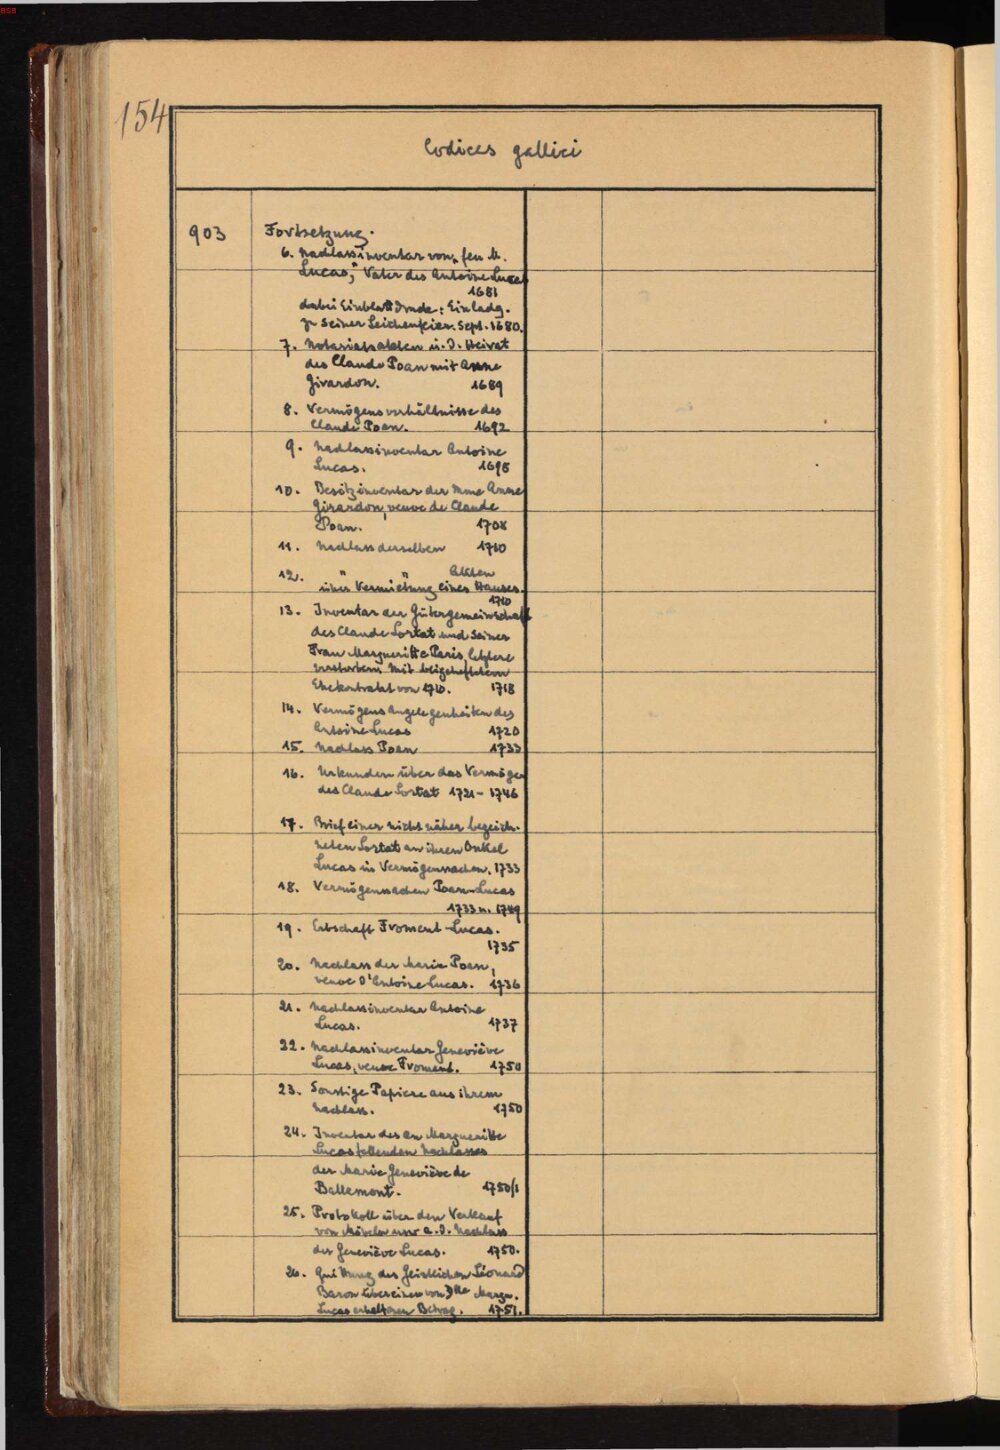 BSB
154
Codices gallici
903
Fortsetzung.
6. Nachlassinventar von „feu M.
Lucas," Vater des Antoine Lucas
1681
dabei Einblattdruck: Einladg.
zu seiner Leichenfeier. Sept. 1680.
7. Notariatsakten ü. d. Heirat
des Claude Poan mit Anne
Girardon. 1689
8. Vermögensverhältnisse des
Claude Poan. 1692
9. Nachlassinventar Antoine
Lucas. 1695
10. Besitzinventar der Mme Anne
Girardon, veuve de Claude
Poan. 1708
11. Nachlass derselben 1710
12. " " Akten
über Vermietung eines Hauses.
1710
13. Inventar der Gütergemeinschaft
des Claude Sortat und seiner
Frau Margueritte Paris, letztere
verstorben, mit beigeheftetem
Ehekontrakt von 1710. 1718
14. Vermögensangelegenheiten des
Antoine Lucas 1720
15. Nachlass Poan 1733
16. Urkunden über das Vermögen
des Claude Sortat 1721-1746
17. Brief einer nicht näher bezeich-
neten Sortat an ihren Onkel
Lucas in Vermögenssachen. 1733
18. Vermögenssachen Poan-Lucas
1733 u. 1749
19. Erbschaft Froment-Lucas.
1735
20. Nachlass der Marie Poan,
veuve d'Antoine Lucas. 1736
21. Nachlassinventar Antoine
Lucas. 1737
22. Nachlassinventar Geneviève
Lucas, veuve Froment. 1750
23. Sonstige Papiere aus ihrem
Nachlass. 1750
24. Inventar des an Margueritte
Lucas fallenden Nachlasses
der Marie Geneviève de
Ballemont. 1750/1
25. Protokoll über den Verkauf
von Möbeln usw a. d. Nachlass
der Geneviève Lucas. 1750.
26. Quittung des Geistlichen Léonard
Baron über einen von Dlle Margu.
Lucas erhaltenen Betrag. 1751.